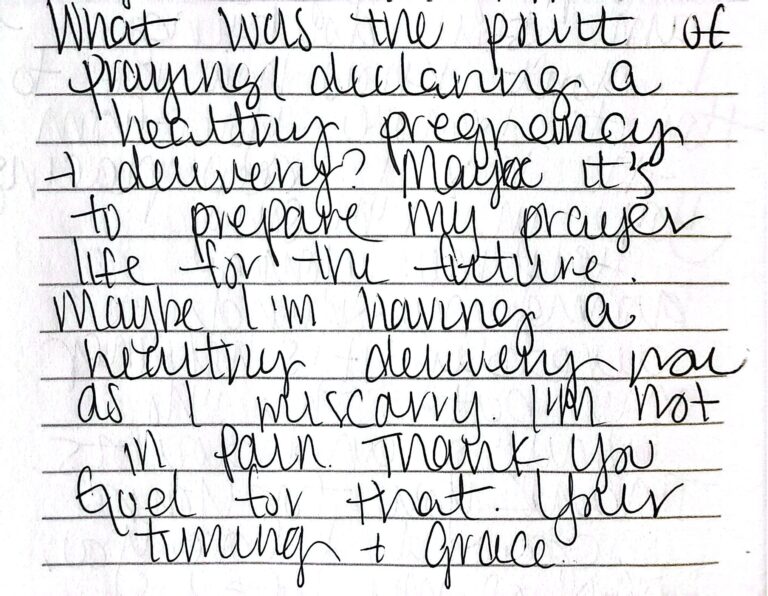 What was the point of
praying/declaring a
healthy pregnancy
+ delivery? Maybe it's
to prepare my prayer
life for the future.
Maybe I'm having a
healthy delivery now
as I miscarry. I'm not
in pain. Thank you
God for that. Your
timing + Grace.